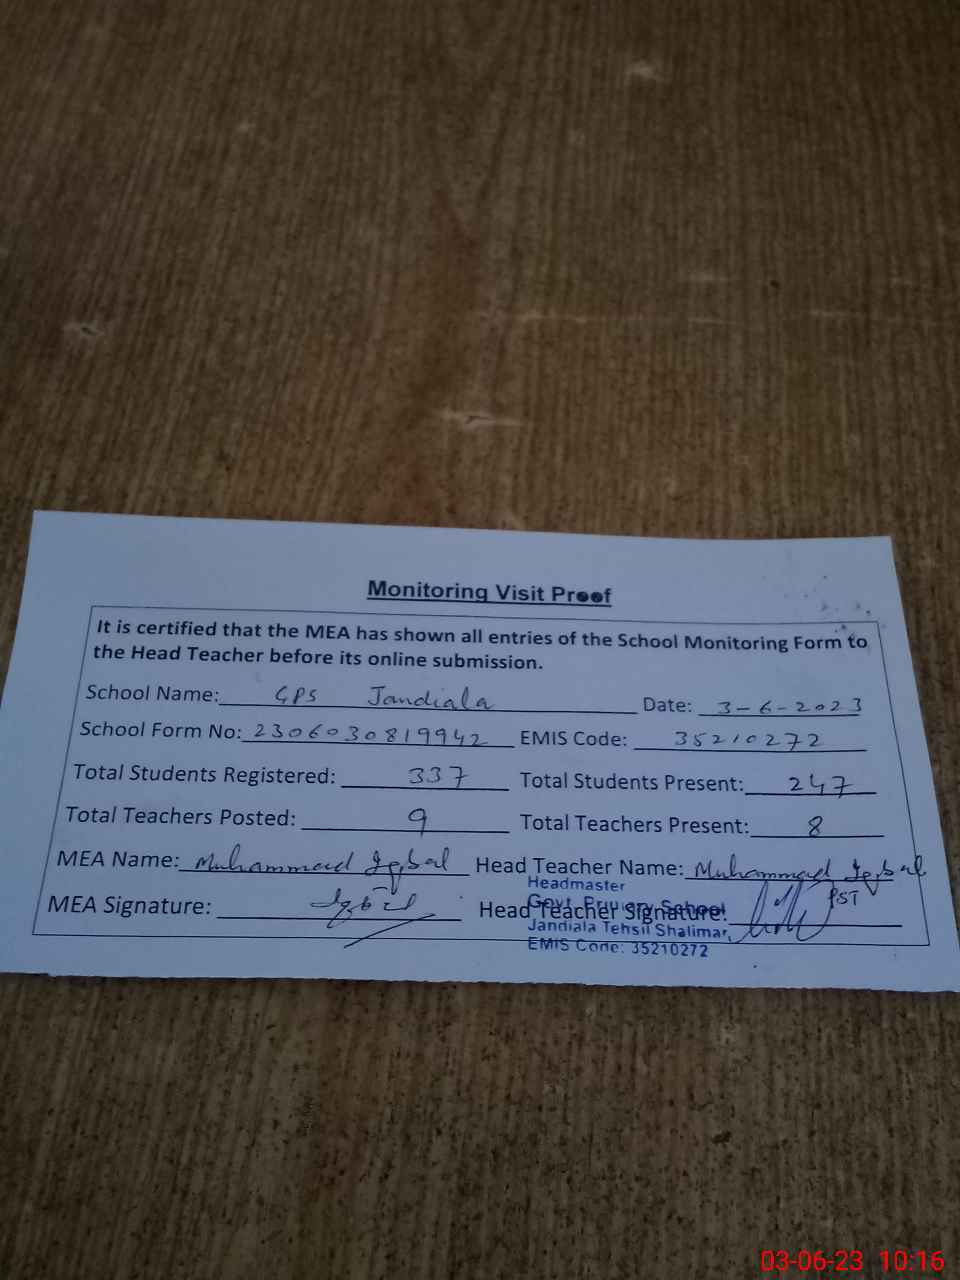 Monitoring Visit Proof
It is certified that the MEA has shown all entries of the School Monitoring Form to
the Head Teacher before its online submission.
School Name: GPS Jandiala Date: 3-6-2023
School Form No: 2306030819942 EMIS Code: 35210272
Total Students Registered: 337 Total Students Present: 247
Total Teachers Posted: 9 Total Teachers Present: 8
MEA Name: Muhammad Iqbal Head Teacher Name: Muhammad Iqbal
PST
MEA Signature: Iqbal Head Teacher Signature:
Headmaster
Govt. Primary School
Jandiala Tehsil Shalimar,
EMIS Code: 35210272
03-06-23 10:16